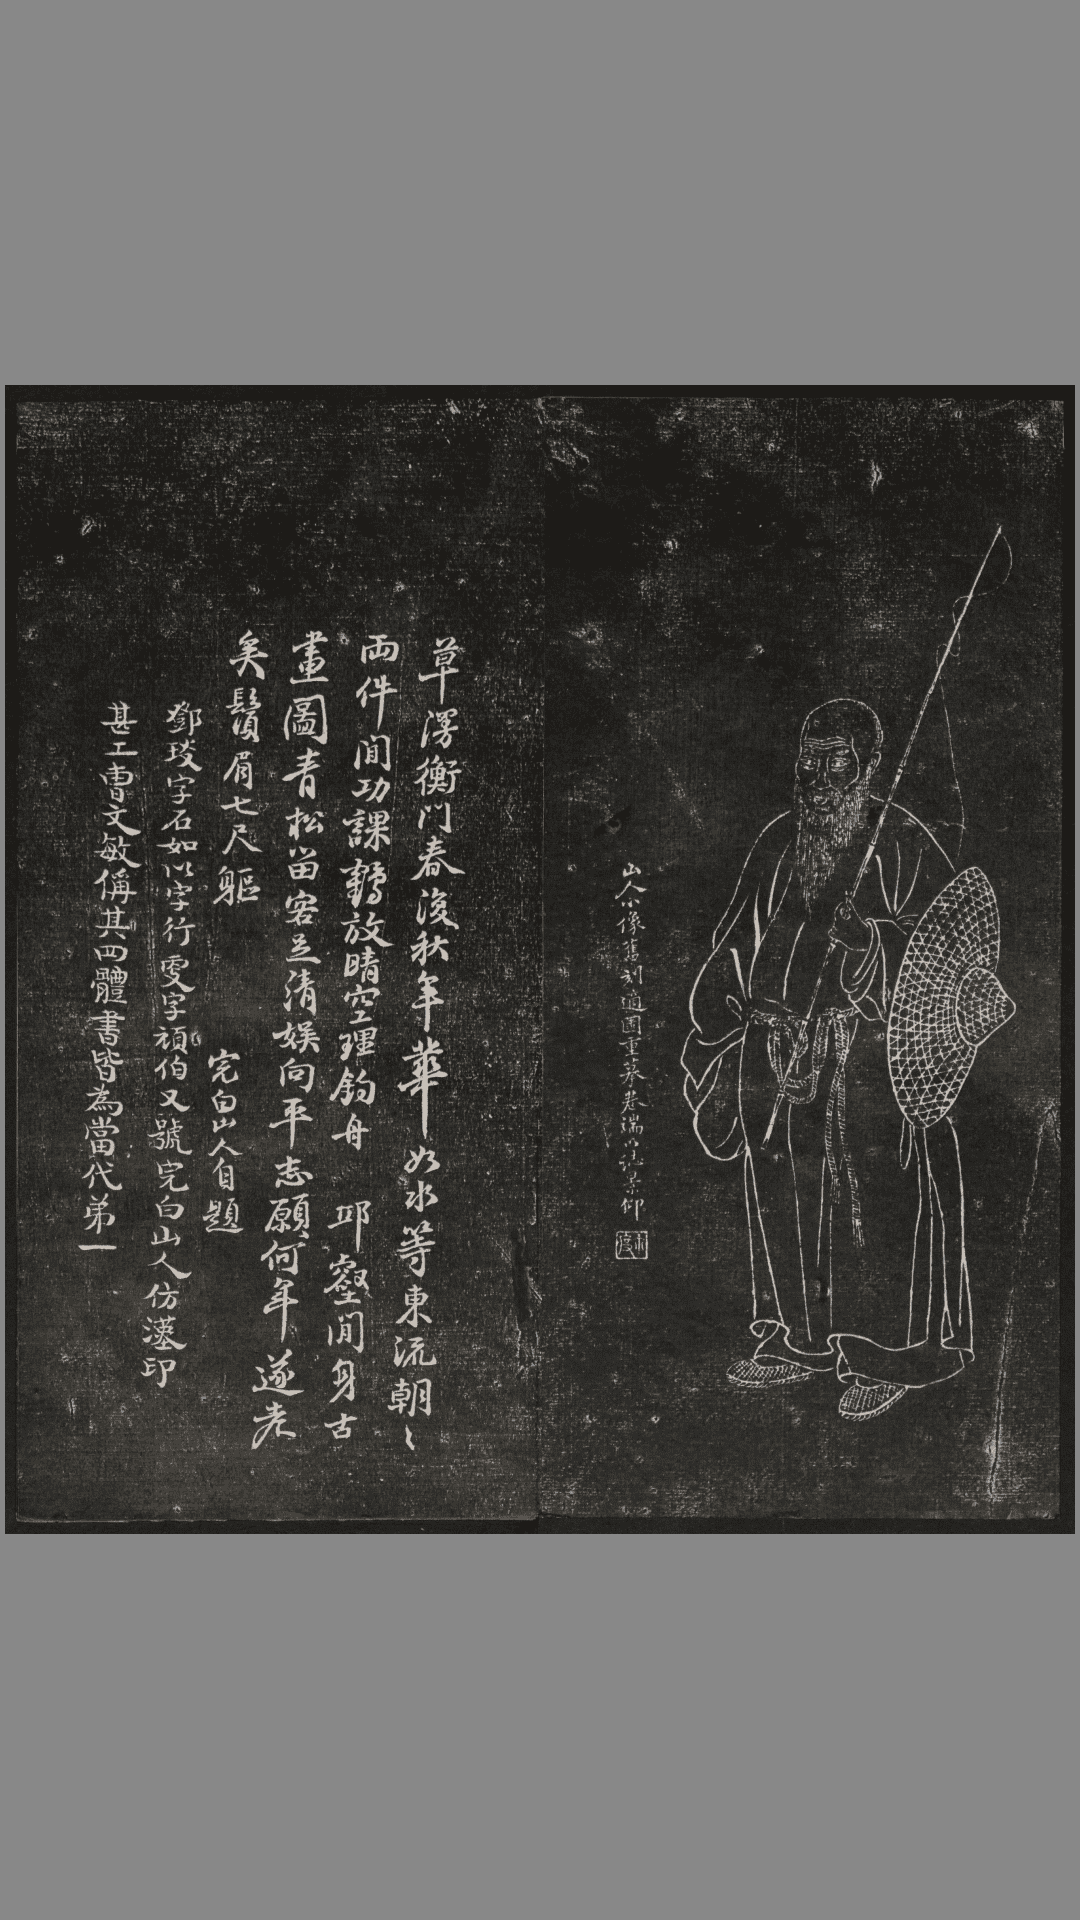 山人小像舊刻適園重摹卷端以誌景仰
草澇衡門春復秋年華如水等東流朝〻
兩件閒功課鶴放晴空理釣舟 邱壑閒身古
畫圖青松留客足清娛向平志願何年遂老
矣鬚眉七尺軀
完白山人自題
鄧琰字石如以字行更字頑伯又號完白山人仿漢印
甚工曹文敏偁其四體書皆為當代弟一